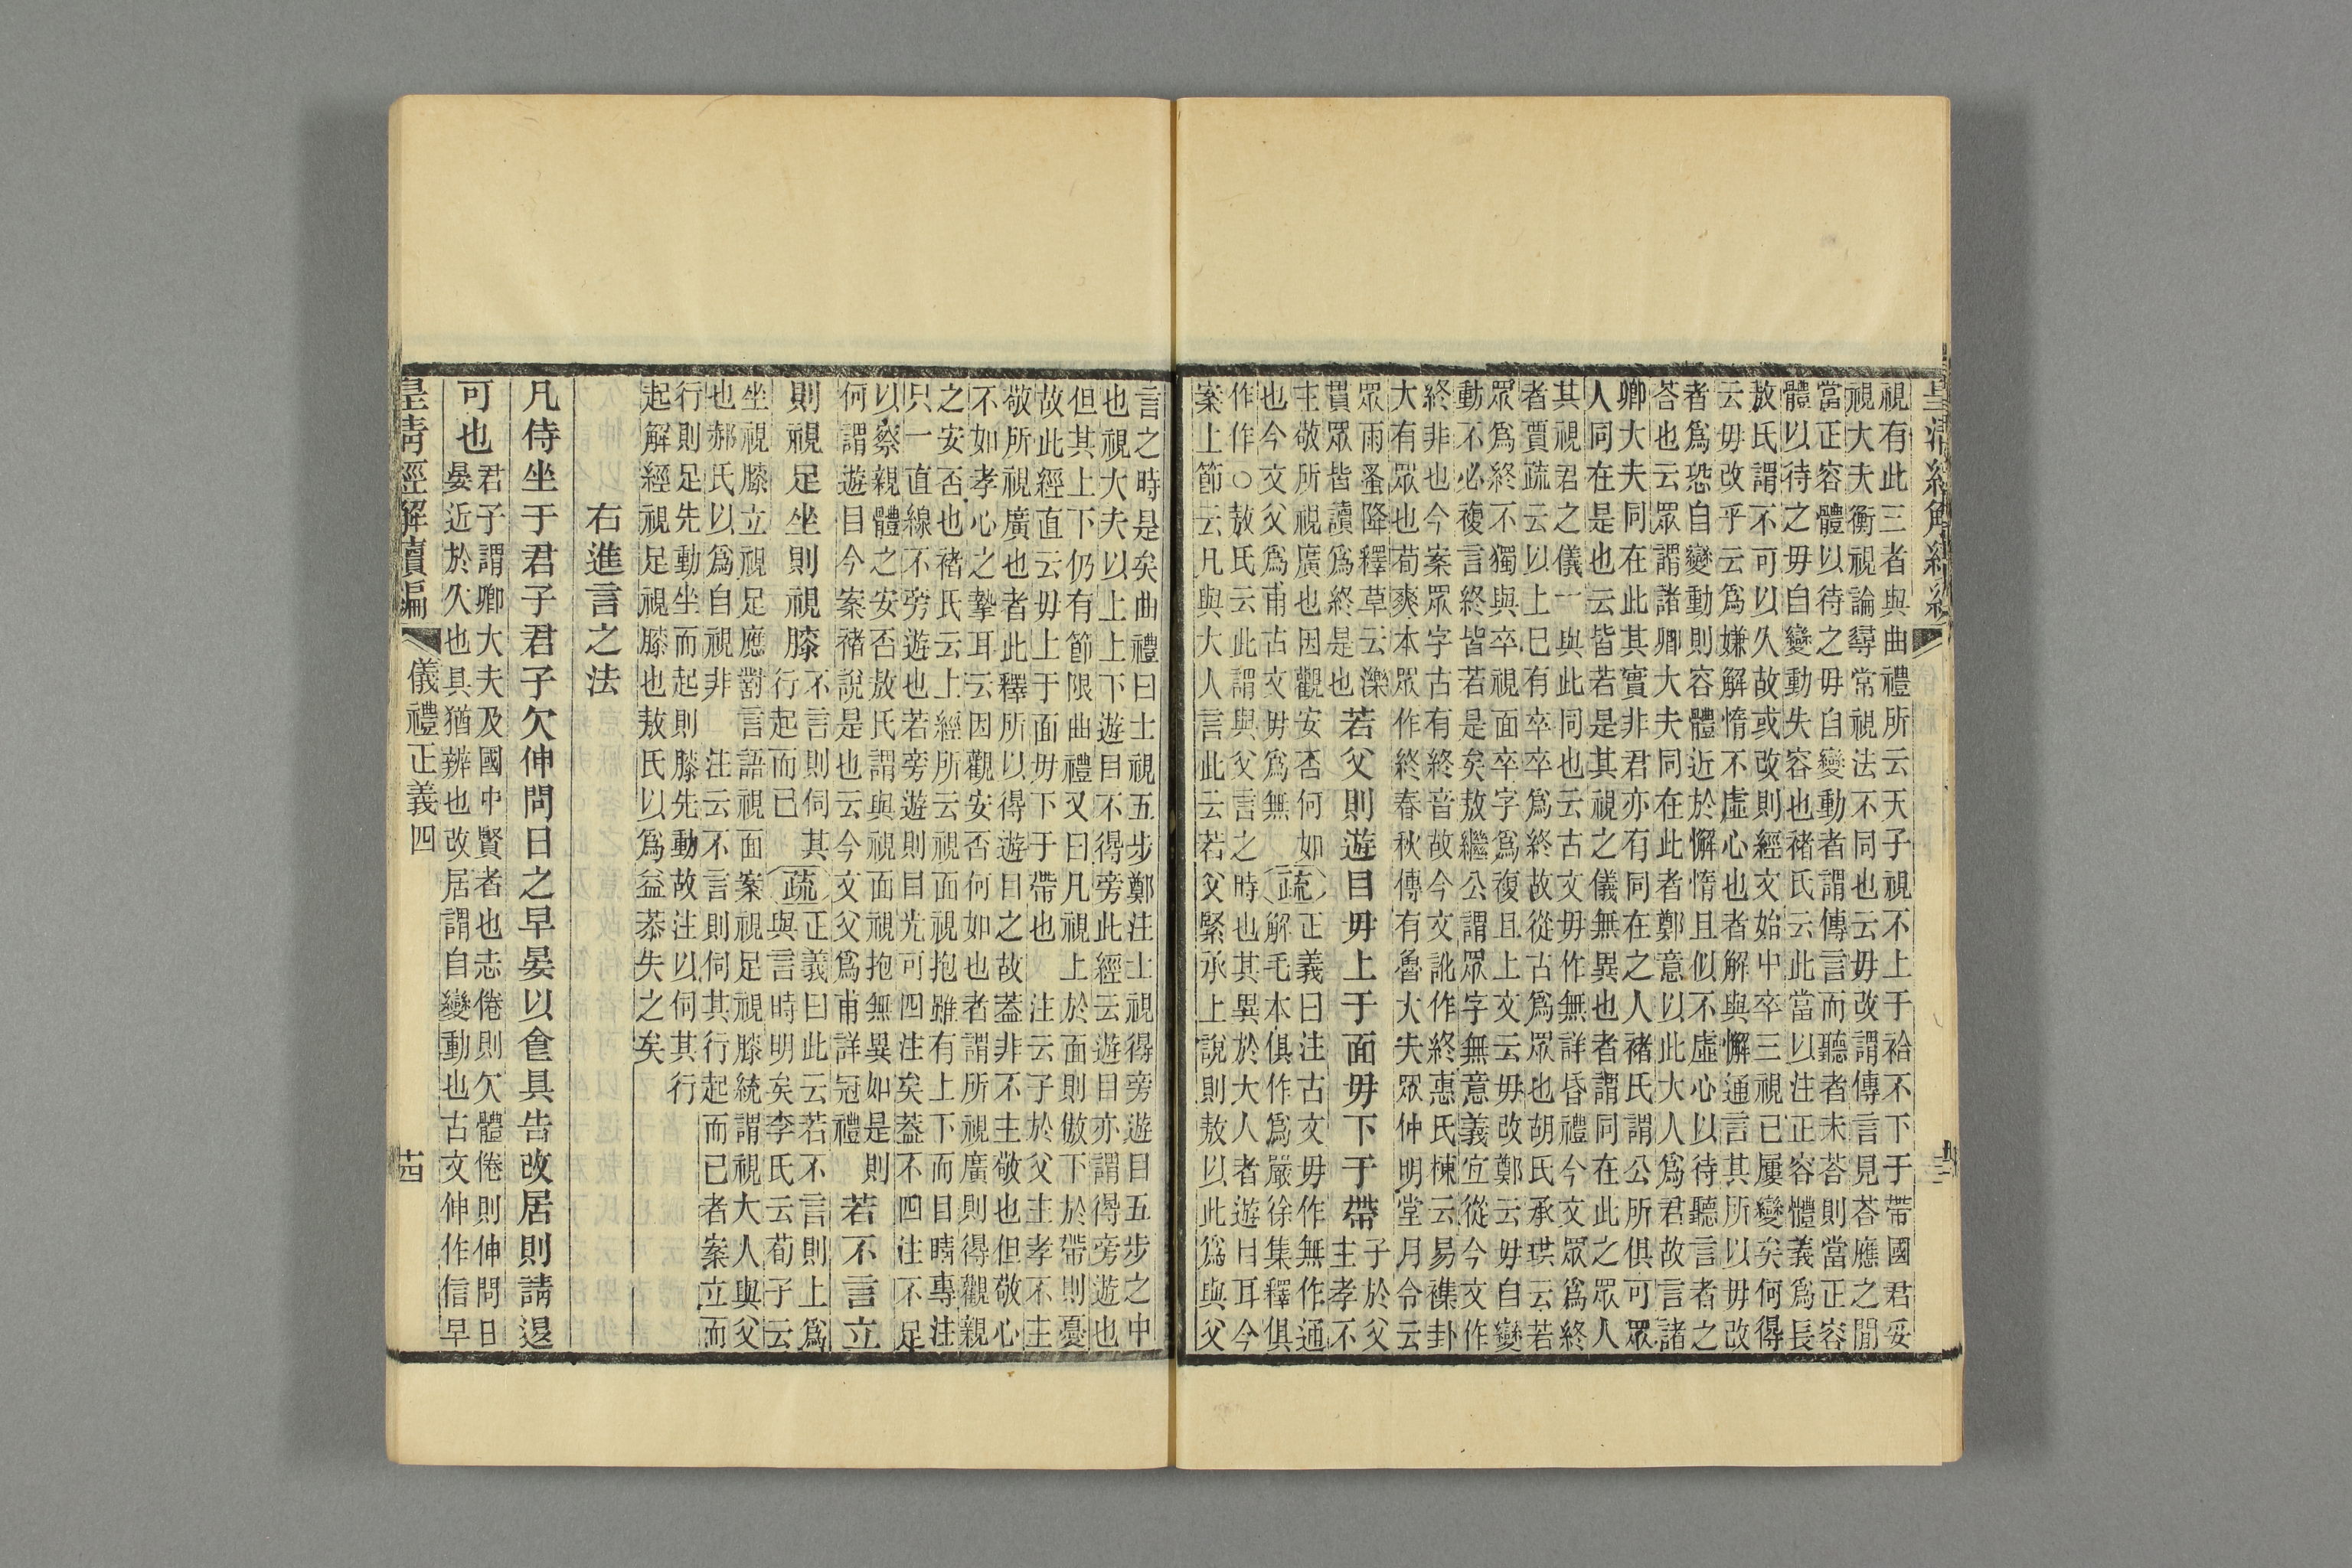 視有此三者與曲禮所云天子視不上于袷不下于帶國君妥
視大夫衡視論尋常視法不同也云毋改謂傳言見荅應之閒
當正容體以待之毋自變動者謂傳言而聽者未荅則當正容
體以待之毋自變動失容也褚氏云此當以注正容體義爲長
敖氏謂不可以久故或改則經文始中卒三視已屢變矣何得
云毋改乎云爲嫌解惰不虛心也者解與懈通言其所以毋改
者爲恐自變動則容體近於懈惰且似不虛心以待聽言者之
荅也云眾謂諸卿大夫同在此者鄭意以此大人爲君故言諸
卿大夫同在此其實非君亦有同在之人褚氏謂公所俱可眾
人同在是也云皆若是其視之儀無異也者謂同在此之眾人
其視君之儀一與此同也云古文毋作無詳昏禮今文眾爲終
者賈疏云以上已有卒卒爲終故從古爲眾也胡氏承珙云若
眾爲終不獨與卒視面卒字爲複且上文云毋改鄭云毋自變
動不必複言終皆若是矣敖繼公謂眾字無意義宜從今文作
終非也今案眾字古有終音故今文訛作終惠氏棟云易襍卦
大有眾也荀爽本眾作終春秋傳有魯大夫眾仲明堂月令云
眾雨蚤降釋草云濼
貫眾皆讀爲終是也
若父則遊目毋上于面毋下于帶
子於父
主孝不
主敬所視廣也因觀安否何如
也今文父爲甫古文毋爲無
疏
正義曰注古文毋作無作通
解毛本俱作爲嚴徐集釋俱
作作○敖氏云此謂與父言之時也其異於大人者遊目耳今
案上節云凡與大人言此云若父緊承上說則敖以此爲與父
言之時是矣曲禮曰士視五步鄭注士視得旁遊目五步之中
也視大夫以上上下遊目不得旁此經云遊目亦謂得旁遊也
但其上下仍有節限曲禮又曰凡視上於面則傲下於帶則憂
故此經直云毋上于面毋下于帶也 注云子於父主孝不主
敬所視廣也者此釋所以得遊目之故蓋非不主敬也但敬心
不如孝心之摯耳云因觀安否何如也者謂所視廣則得觀親
之安否也褚氏云上經所云視面視抱雖有上下而目睛專注
只一直線不旁遊也若旁遊則目光可四注矣葢不四注不足
以察親體之安否敖氏謂與視面視抱無異如是則
何謂遊目今案褚說是也云今文父爲甫詳冠禮
若不言立
則視足坐則視膝
不言則伺其
行起而已
疏
正義曰此云若不言則上爲
與言時明矣李氏云荀子云
坐視膝立視足應對言語視面案視足視膝統謂視大人與父
也郝氏以爲自視非 注云不言則伺其行起而已者案立而
行則足先動坐而起則膝先動故注以伺其行
起解經視足視膝也敖氏以爲益恭失之矣
右進言之法
凡侍坐于君子君子欠伸問日之早晏以食具告改居則請退
可也
君子謂卿大夫及國中賢者也志倦則欠體倦則伸問日
晏近於久也具猶辨也改居謂自變動也古文伸作信早
皇清經解續編
儀禮正義四
十四